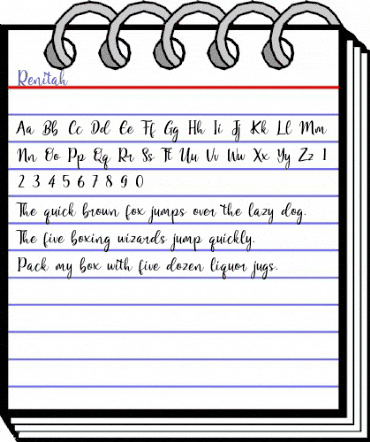 Renitah
Aa Bb Cc Dd Ee Ff Gg Hh Ii Jj Kk Ll Mm
Nn Oo Pp Qq Rr Ss Tt Uu Vv Ww Xx Yy Zz 1
2 3 4 5 6 7 8 9 0
The quick brown fox jumps over the lazy dog.
The five boxing wizards jump quickly.
Pack my box with five dozen liquor jugs.